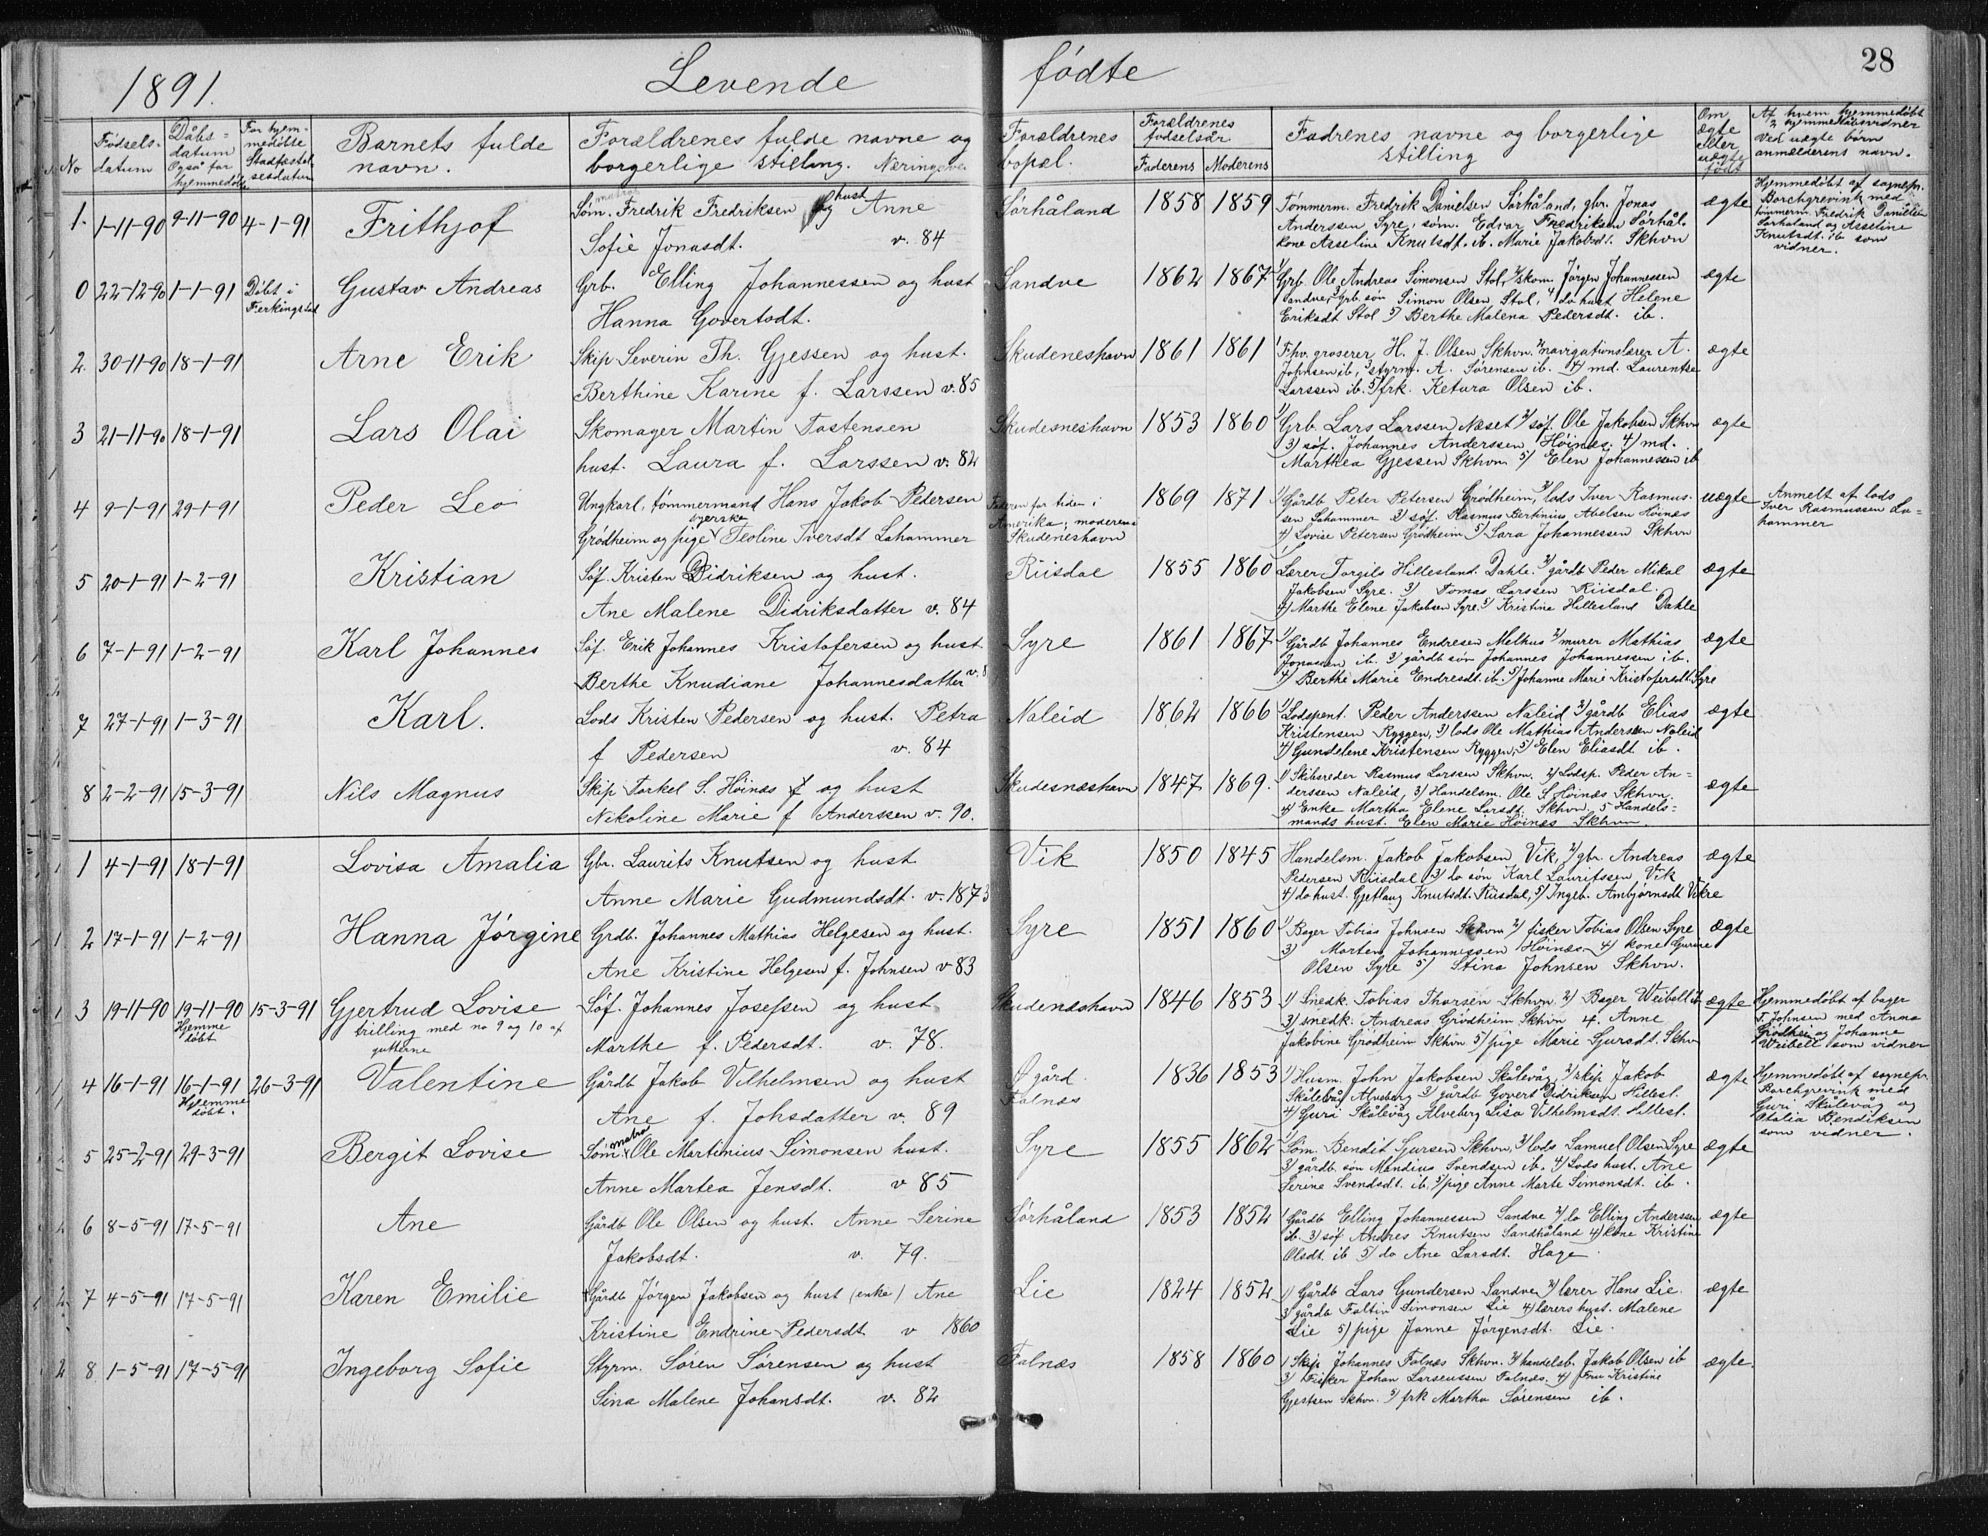 1891. Levende fødte 28
No
Fødsels-datum
Dåbs-datum Også for hjemmedøbte
For hjemmedøbte Stadfæstelsesdatum
Barnets fulde navn.
Forældrenes fulde navne og borgerlige stilling. Næringsvei
Forældrenes bopæl.
Forældrenes fødselsår
Faderens Moderens
Fadrenes navne og borgerlige stilling
Om ægte eller uægte født
Af hvem hjemmedøbt & hjemmedåbsvidner
Ved uægte børn anmelderens navn.
1. 1-11-90 9-11-90 4-1-91 Frithjof
Søm. matros Fredrik Fredriksen og hust Anne
Sofie Jonasdt. v. 84
Sørhåland 1858 1859
Tømmerm. Fredrik Danielsen Sørhåland, gbr. Jonas
Anderssen Syre, søm. Edvar Fredriksen Sørhål.
kone Asseline Knutsdt. ib. Marie Jakobsdt. Skhvn
ægte
Hjemmedøbt af sognepr.
Borchgrevink med
tømmerm. Fredrik Danielsen
Sørhåland og Asseline
Knutsdt. ib som
vidner.
0 22-12-90 1-1-91 Døbt i Ferkingstad Gustav Andreas
Grb. Elling Johannessen og hust
Hanna Govertsdt.
Sandve 1862 1867
1/ Grb. Ole Andreas Simonsen Stol, 2/ skom Jørgen Johannessen
Sandve, 3/ grb. søn Simon Olsen Stol, 4 do hust Helene
Eriksdt Stol 5/ Berthe Malena Pedersdt. ib.
ægte
2. 30-11-90 18-1-91 Arne Erik
Skip Severin Th. Gjessen og hust.
Berthine Karine f. Larssen v. 85
Skudeneshavn 1861 1861
Fhv. groserer H. J. Olsen Skhvn. 2/ navigationslærer A.
Johnsen ib, 3 styrm. A. Sørensen ib. 4/ md. Laurentse
Larssen ib. 5/ frk. Ketura Olsen ib.
ægte
3 21-11-90 18-1-91 Lars Olai
Skomager Martin Tostensen
hust. Laura f. Larssen v. 82
Skudesneshavn 1853 1860
1/ Grb. Lars Larssen Næset 2/ søf. Ole Jakobsen Skhvn
3/ søf. Johannes Anderssen Høinæs. 4/ md.
Marthea Gjessen Skhvn 5/ Elen Johannessen ib
ægte
4 9-1-91 29-1-91 Peder Leo
Ungkarl, tømmermand Hans Jakob Pedersen
Grødheim og pige syerske Teoline Iversdt Lahammer
Faderen for tiden i
Amerika; moderens
Skudeneshavn
1869 1871
1/ Gårdb Peter Petersen Grødheim, 2/ lods Iver Rasmus-
sen Lahammer 3/ søf. Rasmus Bertinius Abelsen Høinæs
4/ Lovise Petersen Grødheim 5/ Sara Johannessen Skhvn
uægte
Anmelt af lods
Iver Rasmussen La-
hammer
5 20-1-91 1-2-91 Kristian
Søf. Kristen Didriksen og hust.
Ane Malene Didriksdatter v. 84
Riisdal 1855 1860
Lærer Torgils Hillesland Dahle. 2/ gårdb Peder Mikal
Jakobsen Syre. 3/ Tomas Larssen Riisdal
4/ Marthe Elene Jakobsen Syre. 5/ Kristina Hillesland Dahle
ægte
6 7-1-91 1-2-91 Karl Johannes
Søf. Erik Johannes Kristofersen og hust
Berthe Knudiane Johannesdatter v. 8
Syre 1861 1867
1/ Gårdb Johannes Endresen Melhus 2/ murer Mathias
Jonassen ib. 3/ gårdb søn Johannes Johannessen ib.
4/ Berthe Marie Endresdt. ib. 5/ Johanne Marie Kristofersdt. Syre
ægte
7 27-1-91 1-3-91 Karl.
Lods Kristen Pedersen og hust. Petra
f Pedersen v. 84
Naleid 1862 1866
1/ Lodspent. Peder Anderssen Naleid 2/ gårdb Elias
Kristensen Ryggen, 3/ lods Ole Mathias Anderssen Naleid
4/ Gundelene Kristensen Ryggen, 5/ Elen Eliasdt ib.
ægte
8 2-2-91 15-3-91 Nils Magnus
Skip Torkel S. Høinæs og hust
Nikoline Marie f Anderssen v. 90.
Skudesnæshavn 1847 1869.
1/ Skibsreder Rasmus Larssen Skhvn. 2/ Lodsp. Peder An-
derssen Naleid, 3/ Handelsm. Ole S Høinæs Skhvn.
4/ Enke Martha Elene Larsdt. Skhvn, 5 Handels-
mands hust. Elen Marie Høinæs Skhvn.
ægte
1 4-1-91 18-1-91 Lovisa Amalia
Gbr. Laurits Knutsen og hust
Anne Marie Gudmundsdt. v. 1873
Vik 1850 1845
Handelsm. Jakob Jakobsen Vik, 2/ gbr. Andreas
Pedersen Riisdal 3/ do søn Karl Lauritssen Vik
4/ do hust. Gjetlaug Knutsdt. Riisdal, 5/ Ingeb. Ambjørnsdt Vikre
ægte
2 17-1-91 1-2-91 Hanna Jørgine
Grdb. Johannes Mathias Helgesen og hust.
Ane Kristine Helgesen f. Johnsen v 83
Syre 1851 1860
1/ Bager Tobias Johnsen Skhvn 2/ fisker Tobias Olsen Syre
3/ Morten Johannessen Høinæs 4/ kone Gurine
Olsen Syre 5/ Stina Johnsen Skhvn.
ægte
3 19-11-90 19-11-90 Hjemme døbt 15-3-91 Gjertrud Lovise
trilling med no 9 og 10 af
gutterne
Søf. Johannes Josefsen og hust
Marthe f. Pedersdt. v. 78.
Skudenæshavn 1846 1853
1/ Snedk. Tobias Thorsen Skhvn. 2/ Bager Weibell ib
3/ snedk. Andreas Grødheim Skhvn 4. Anne
Jakobine Grødheim Skhvn 5/ pige Marie Sjursdt. Skhv
ægte
Hjemmedøbt af bager
T. Johnsen med Anna
Grødhei og Johanne
Weibell som vidner
4 16-1-91 16-1-91 Hjemme døbt. 26-3-91 Valentine
Gårdb Jakob Vilhelmsen og hust
Ane f. Johsdatter v. 89
Øgård
Falnæs
1836 1853
1/ Husm. John Jakobsen Skålevåg 2/ skip Jakob
Skålevåg Alveberg 3/ gårdb Govert Didriksen Hillesl.
4/ Guri Skålevåg Alveberg Lisa Vilhelmsdt. Hillesl.
ægte
Hjemmedøbt af sognepr.
Borchgrevink med
Guri Skålevåg og
Otalia Bendiksen
som vidner.
5 25-2-91 29-3-91 Bergit Lovise
Søm. matros Ole Martinius Simonsen hust.
Anne Martea Jensdt. v 85
Syre 1855 1862
1/ Søm. Bendit Sjursen Skhvn, 2/ lods Samuel Olsen Syre
3/ gårdb søn Mandius Svendsen ib, 4/ Lods hust. Ane
Serine Svendsdt. ib, 5/ pige Anne Marte Simonsdt. ib.
ægte
6 8-5-91 17-5-91 Ane
Gårdb Ole Olsen og hust. Anne Serine
Jakobsdt. v. 79.
Sørhåland 1853 1852
1 Gårdb Elling Johannessen Sandve 2/ do Elling Anderssen
ib. 3/ søf Andres Knutsen Sandhåland 4/ kone Kristine
Olsdt. ib 5/ do Ane Larsdt. Hage.
ægte
7 4-5-91 17-5-91 Karen Emilie
Gårdb Jørgen Jakobsen og hust (enke) Ane
Kristine Endrine Pedersdt v 1860
Lie 1824 1852
1/ Gårdb Lars Gundersen Sandve 2/ lærer Hans Lie.
3/ gårdb Faltin Simonsen Lie 4/ lærers hust. Malene
Lie 5/ pige Janne Jørgensdt. Lie.
ægte
8. 1-5-91 17-5-91 Ingeborg Sofie
Styrm. Søren Sørensen og hust
Sina Malene Johansdt. v. 82
Falnæs 1858 1860
1/ Skip Johannes Falnæs Skhvn. 2/ handelsb. Jakob Olsen ib
3/ Fisker Johan Larseussen Falnæs. 4/ Fru Kristine
Gjestsen Skhvn. 5/ frk Martha Sørensen ib.
ægte.